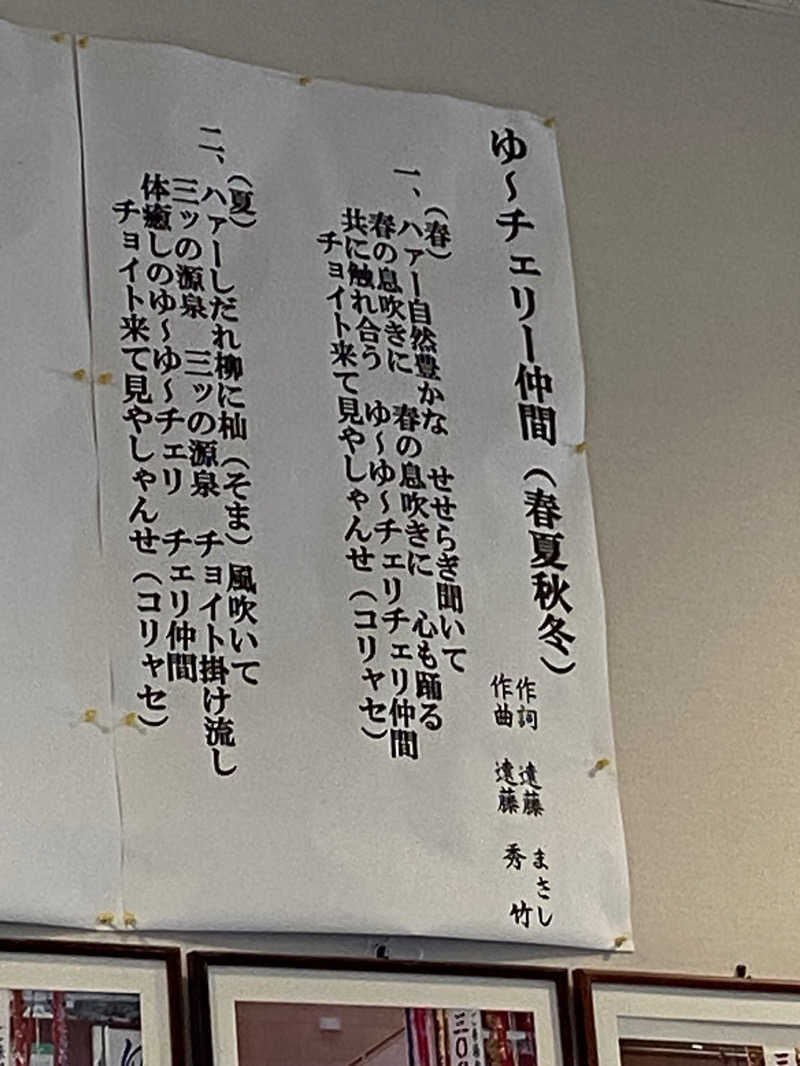 ゆ～チェリー仲間（春夏秋冬）
作詞　遠藤　まさし
作曲　遠藤　秀竹
一、（春）
ハァー自然豊かな　せせらぎ聞いて
春の息吹きに　春の息吹きに　心も踊る
共に触れ合う　ゆ～ゆ～チェリチェリ仲間
チョイト来て見やしゃんせ（コリャセ）
二、（夏）
ハァーしだれ柳に杣（そま）風吹いて
三ッの源泉　三ッの源泉　チョイト掛け流し
体癒しのゆ～ゆ～チェリ　チェリ仲間
チョイト来て見やしゃんせ（コリャセ）